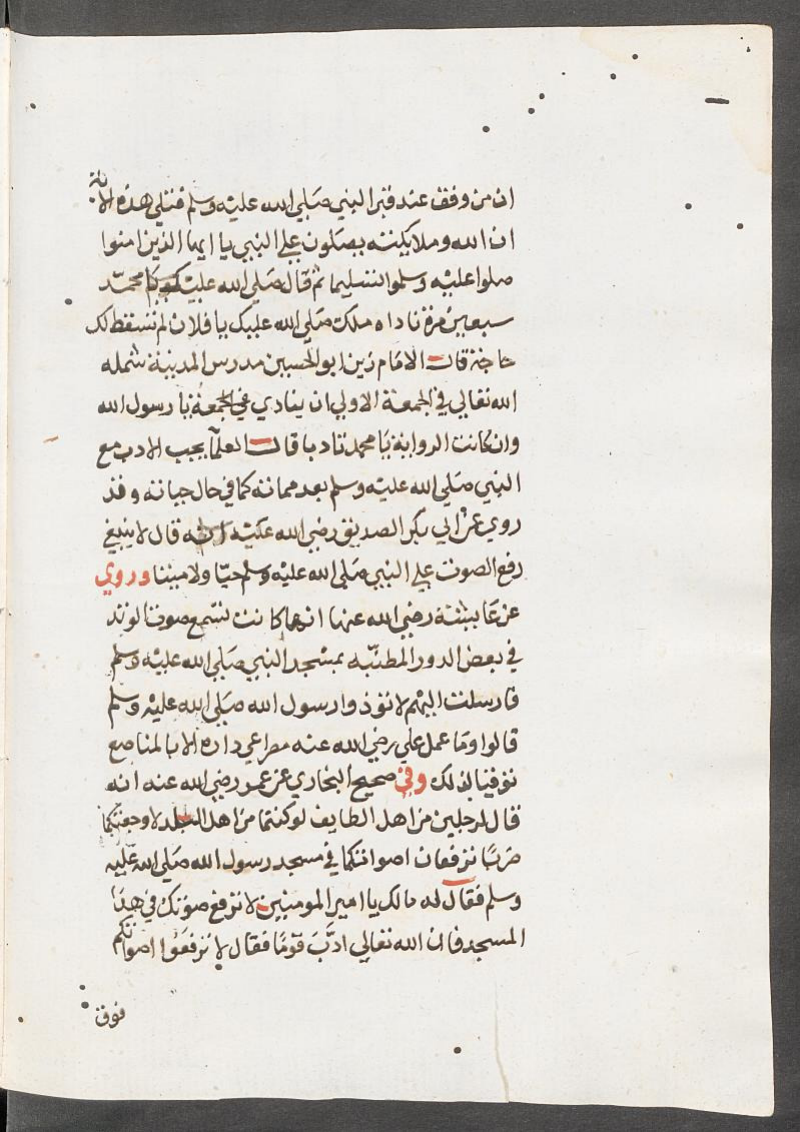 ان من وقف عند قبر النبي صلي الله عليه وسلم فتلي هذه الاية
ان الله وملايكته يصلون علي النبي يا ايها الذين امنوا
صلوا عليه وسلموا تسليما ثم قال صلي الله عليك يا محمد
سبعين مرة ناداه ملك صلي الله عليك يا فلان لم تسقط لك
حاجة قال الامام زين ابو الحسين مدرس المدينة شمله
الله تعالي في الجمعة الاولي ان ينادي في الجمعة يا رسول الله
وان كانت الرواية يا محمد تادبا قال العلمآ يجب الادب مع
النبي صلي الله عليه وسلم بعد مماته كما في حال حياته وقد
روي عن ابي بكر الصديق رضي الله عنه انه قال لا ينبغي
رفع الصوت علي النبي صلي الله عليه وسلم حيا ولا ميتا وروي
عن عايشة رضي الله عنها انها كانت تسمع صوت الوتد
في بعض الدور المطنبه بمسجد النبي صلي الله عليه وسلم
فارسلت اليهم لا توذوا رسول الله صلي الله عليه وسلم
قالوا وما عمل علي رضي الله عنه مصراعي داره الا بالمناصع
توقيا لذلك وفي صحيح البخاري عن عمر رضي الله عنه انه
قال لرجلين من اهل الطايف لو كنتما من اهل البلد لاوجعتكما
ضربا ترفعان اصواتكما في مسجد رسول الله صلي الله عليه
وسلم فقال له مالك يا امير المومنين لا ترفع صوتك في هذا
المسجد فان الله تعالي ادب قوما فقال لا ترفعوا اصواتكم
فوق